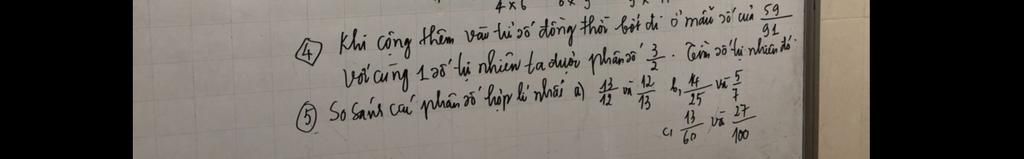 4 × 6
④ Khi cộng thêm vào tử số đồng thời bớt đi ở mẫu số của 59/91
với cùng 1 số tự nhiên ta được phân số 3/2. Tìm số tự nhiên đó.
⑤ So sánh các phân số hợp lí nhất a) 13/12 và 12/13 b, 14/25 và 5/7
c, 13/60 và 27/100